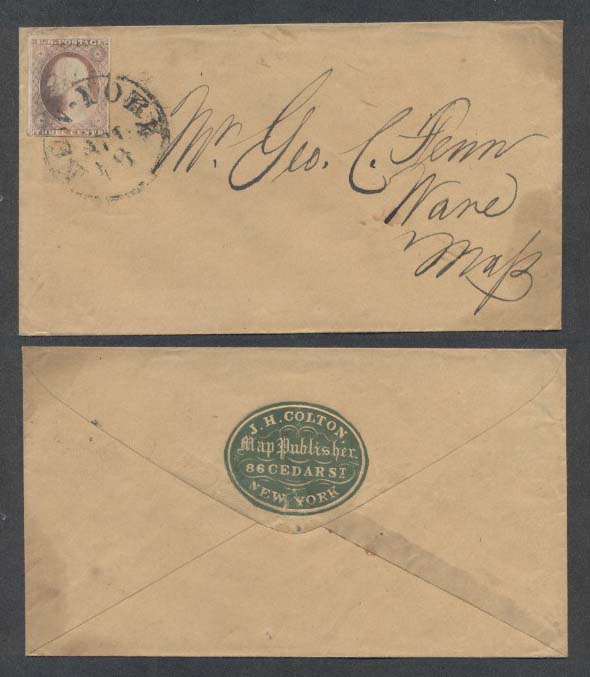 U.S. POSTAGE
THREE CENTS
NEW-YORK
JUL
Mr. Geo. C. Fenn
Ware
Maſs
J. H. COLTON
Map Publisher.
86 CEDAR ST
NEW YORK